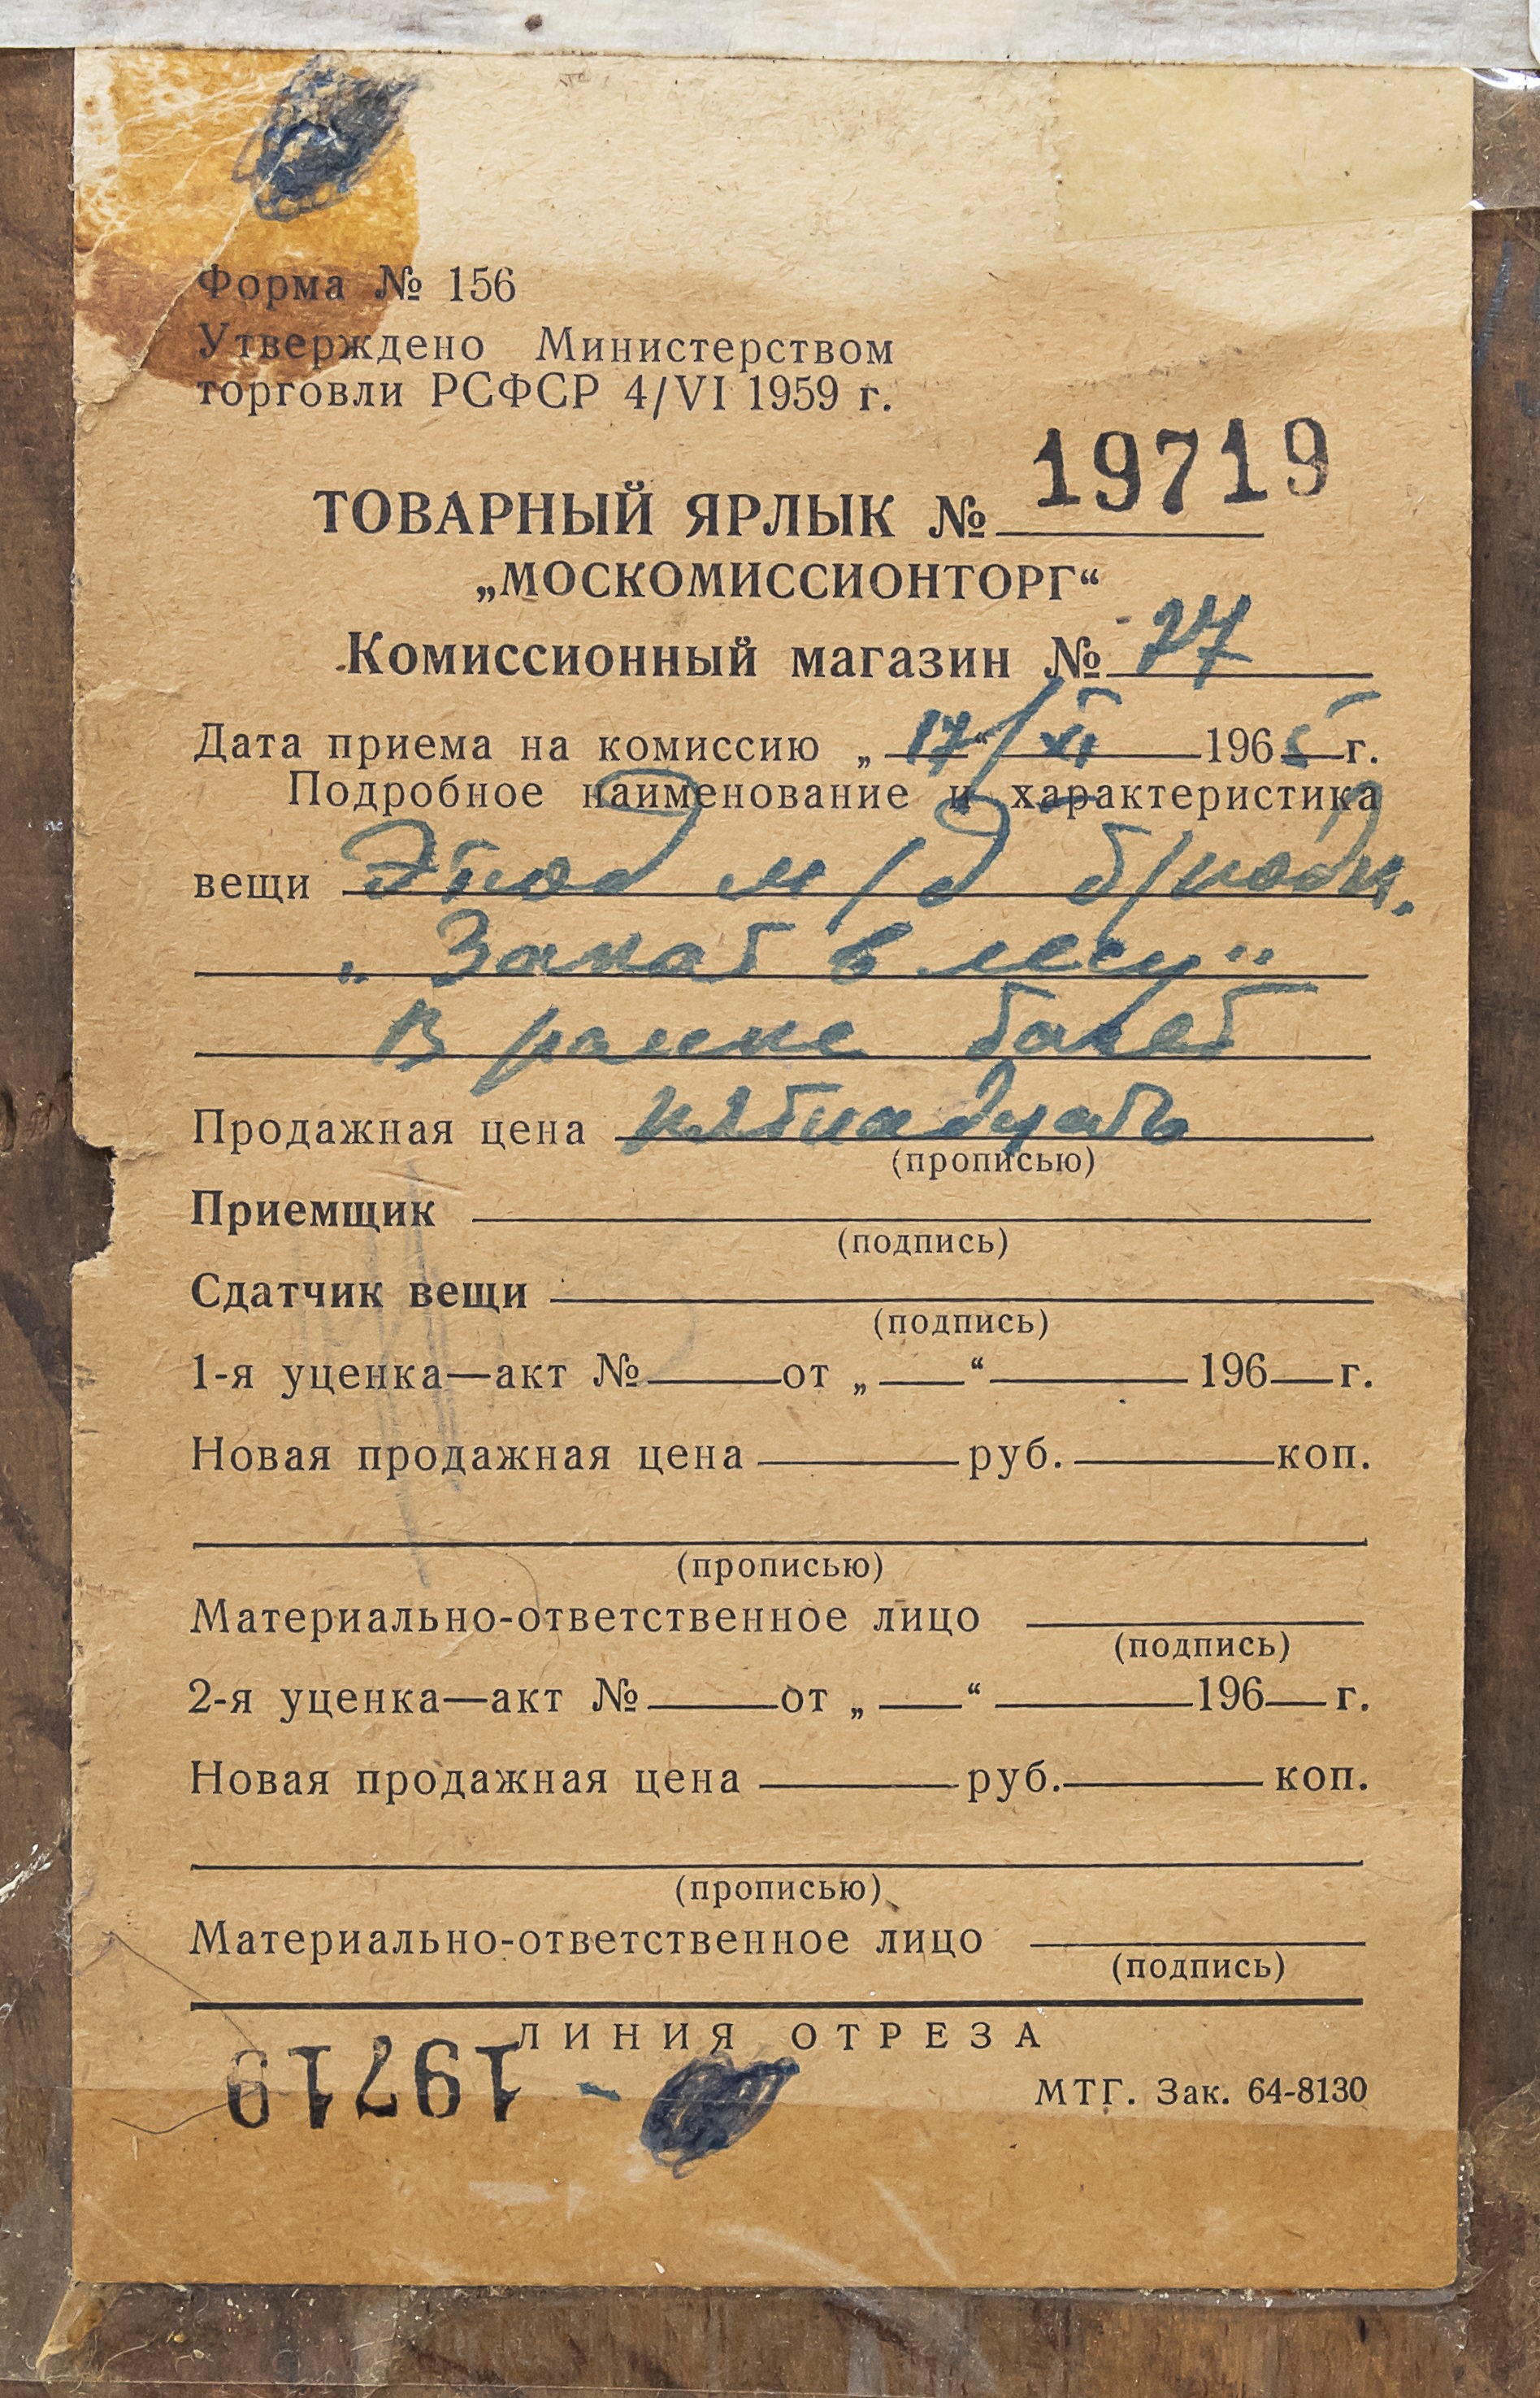 Форма № 156
Утверждено Министерством
торговли РСФСР 4/VI 1959 г.
ТОВАРНЫЙ ЯРЛЫК № 19719
„МОСКОМИССИОНТОРГ“
Комиссионный магазин №
Дата приема на комиссию „17“/XI 1965 г.
Подробное наименование и характеристика
вещи Этюд м/д б/подп.
„Закат в лесу"
В рамке багет
Продажная цена пятнадцать
(прописью)
Приемщик
(подпись)
Сдатчик вещи
(подпись)
1-я уценка—акт № от „ “ 196 г.
Новая продажная цена руб. коп.
(прописью)
Материально-ответственное лицо
(подпись)
2-я уценка—акт № от „ “ 196 г.
Новая продажная цена руб. коп.
(прописью)
Материально-ответственное лицо
(подпись)
ЛИНИЯ ОТРЕЗА
19719
МТГ. Зак. 64-8130